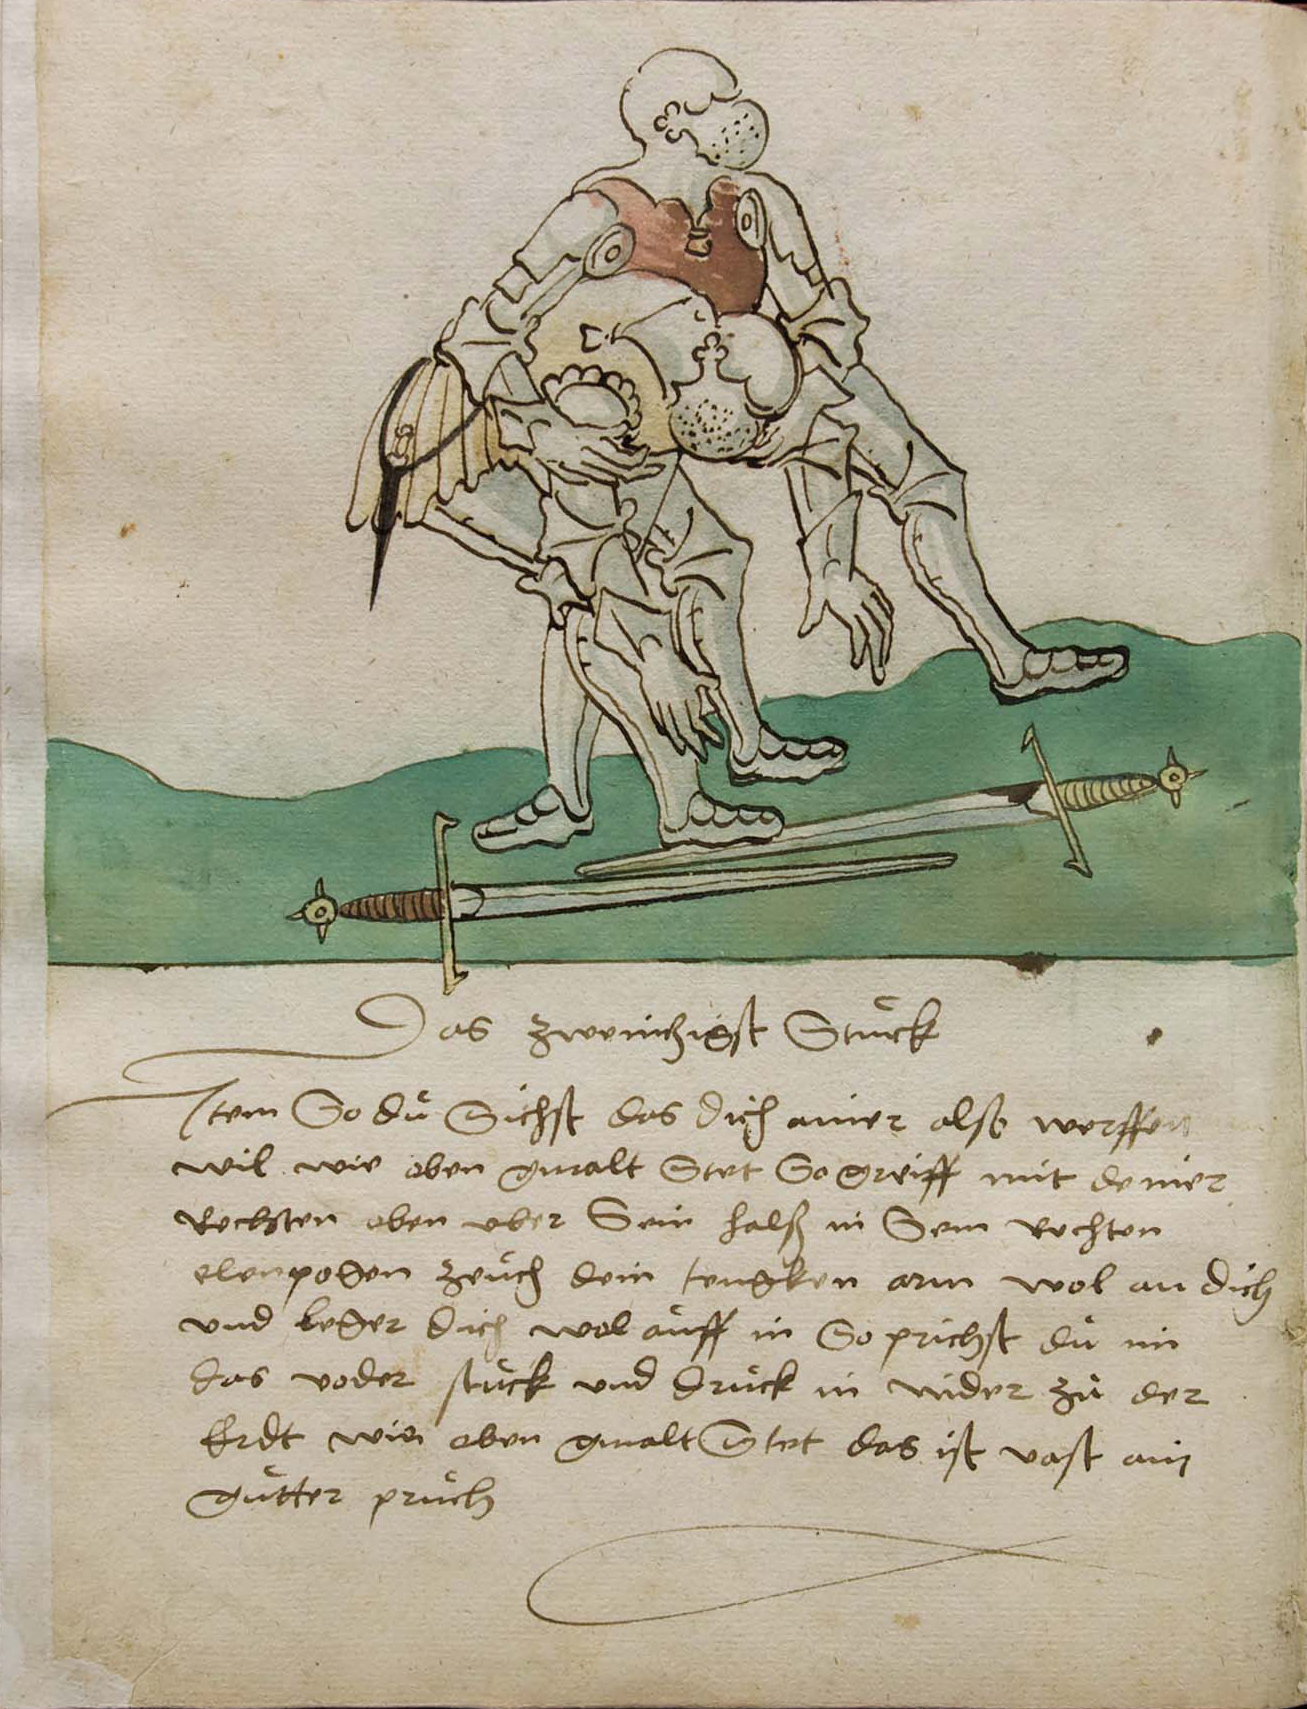 Das zweintzigst Stuck
Item So du Sichst das dich ainer also werffen
wil wie oben gmalt Stet So greiff mit deiner
Rechten oben vber Sein halß in Sein rechten
elenpogen zeuch dein tengken arm wol an dich
vnd leger dich wol auff in So prichst du im
das voder stuck vnd druck in nider zu der
Erdt wie oben gmalt Stet das ist vast ain
gutter pruch